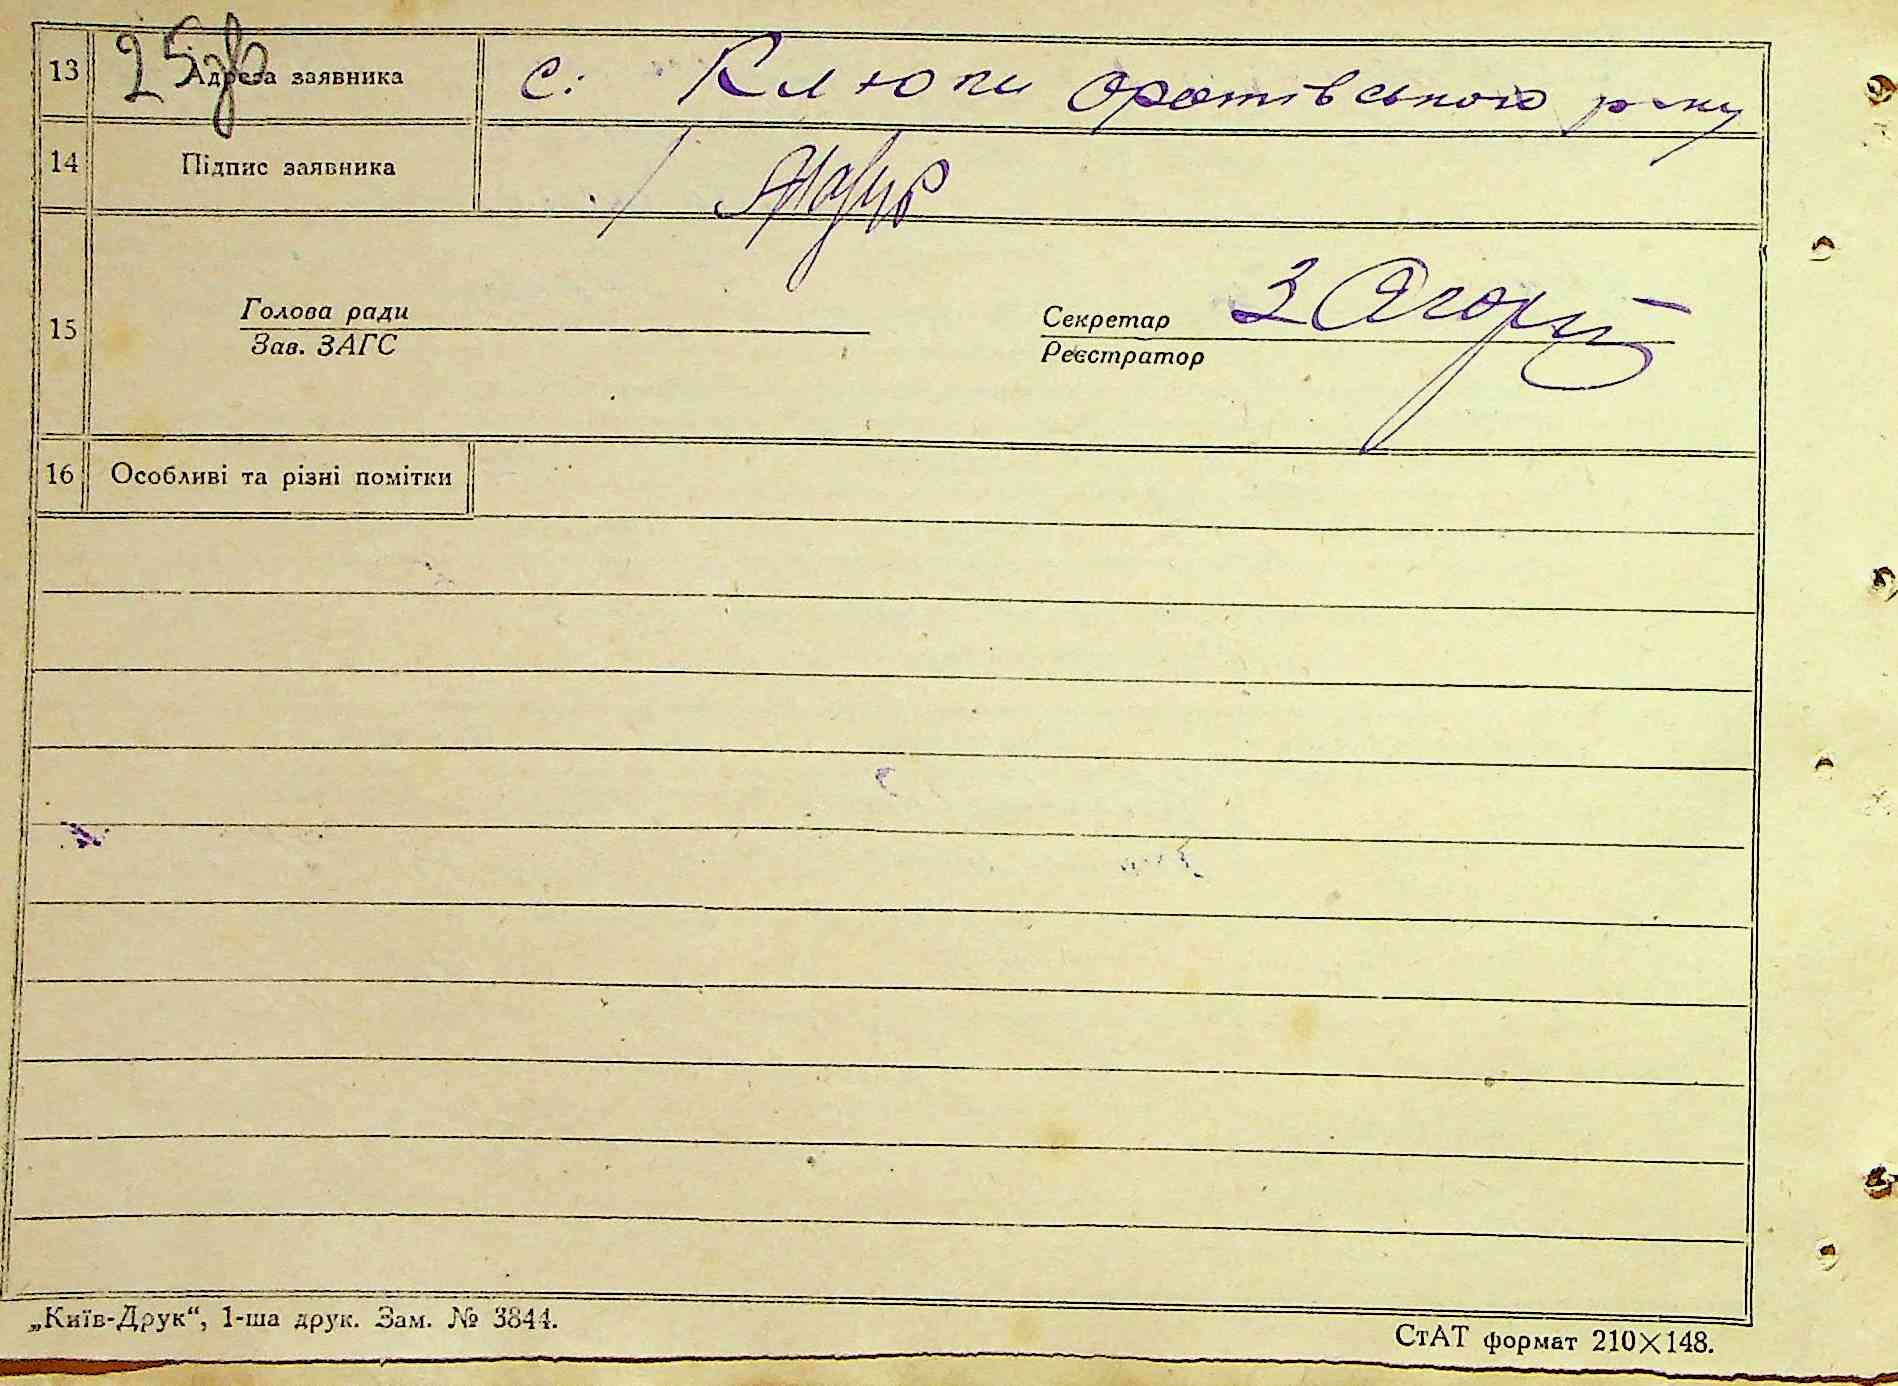 25зв
13 Адреса заявника с. Клюки Оратівського р-ну
14 Підпис заявника
15 Голова ради Секретар
Зав. ЗАГС Реєстратор
16 Особливі та різні помітки
„Київ-Друк“, 1-ша друк. Зам. № 3844.
СтАТ формат 210×148.